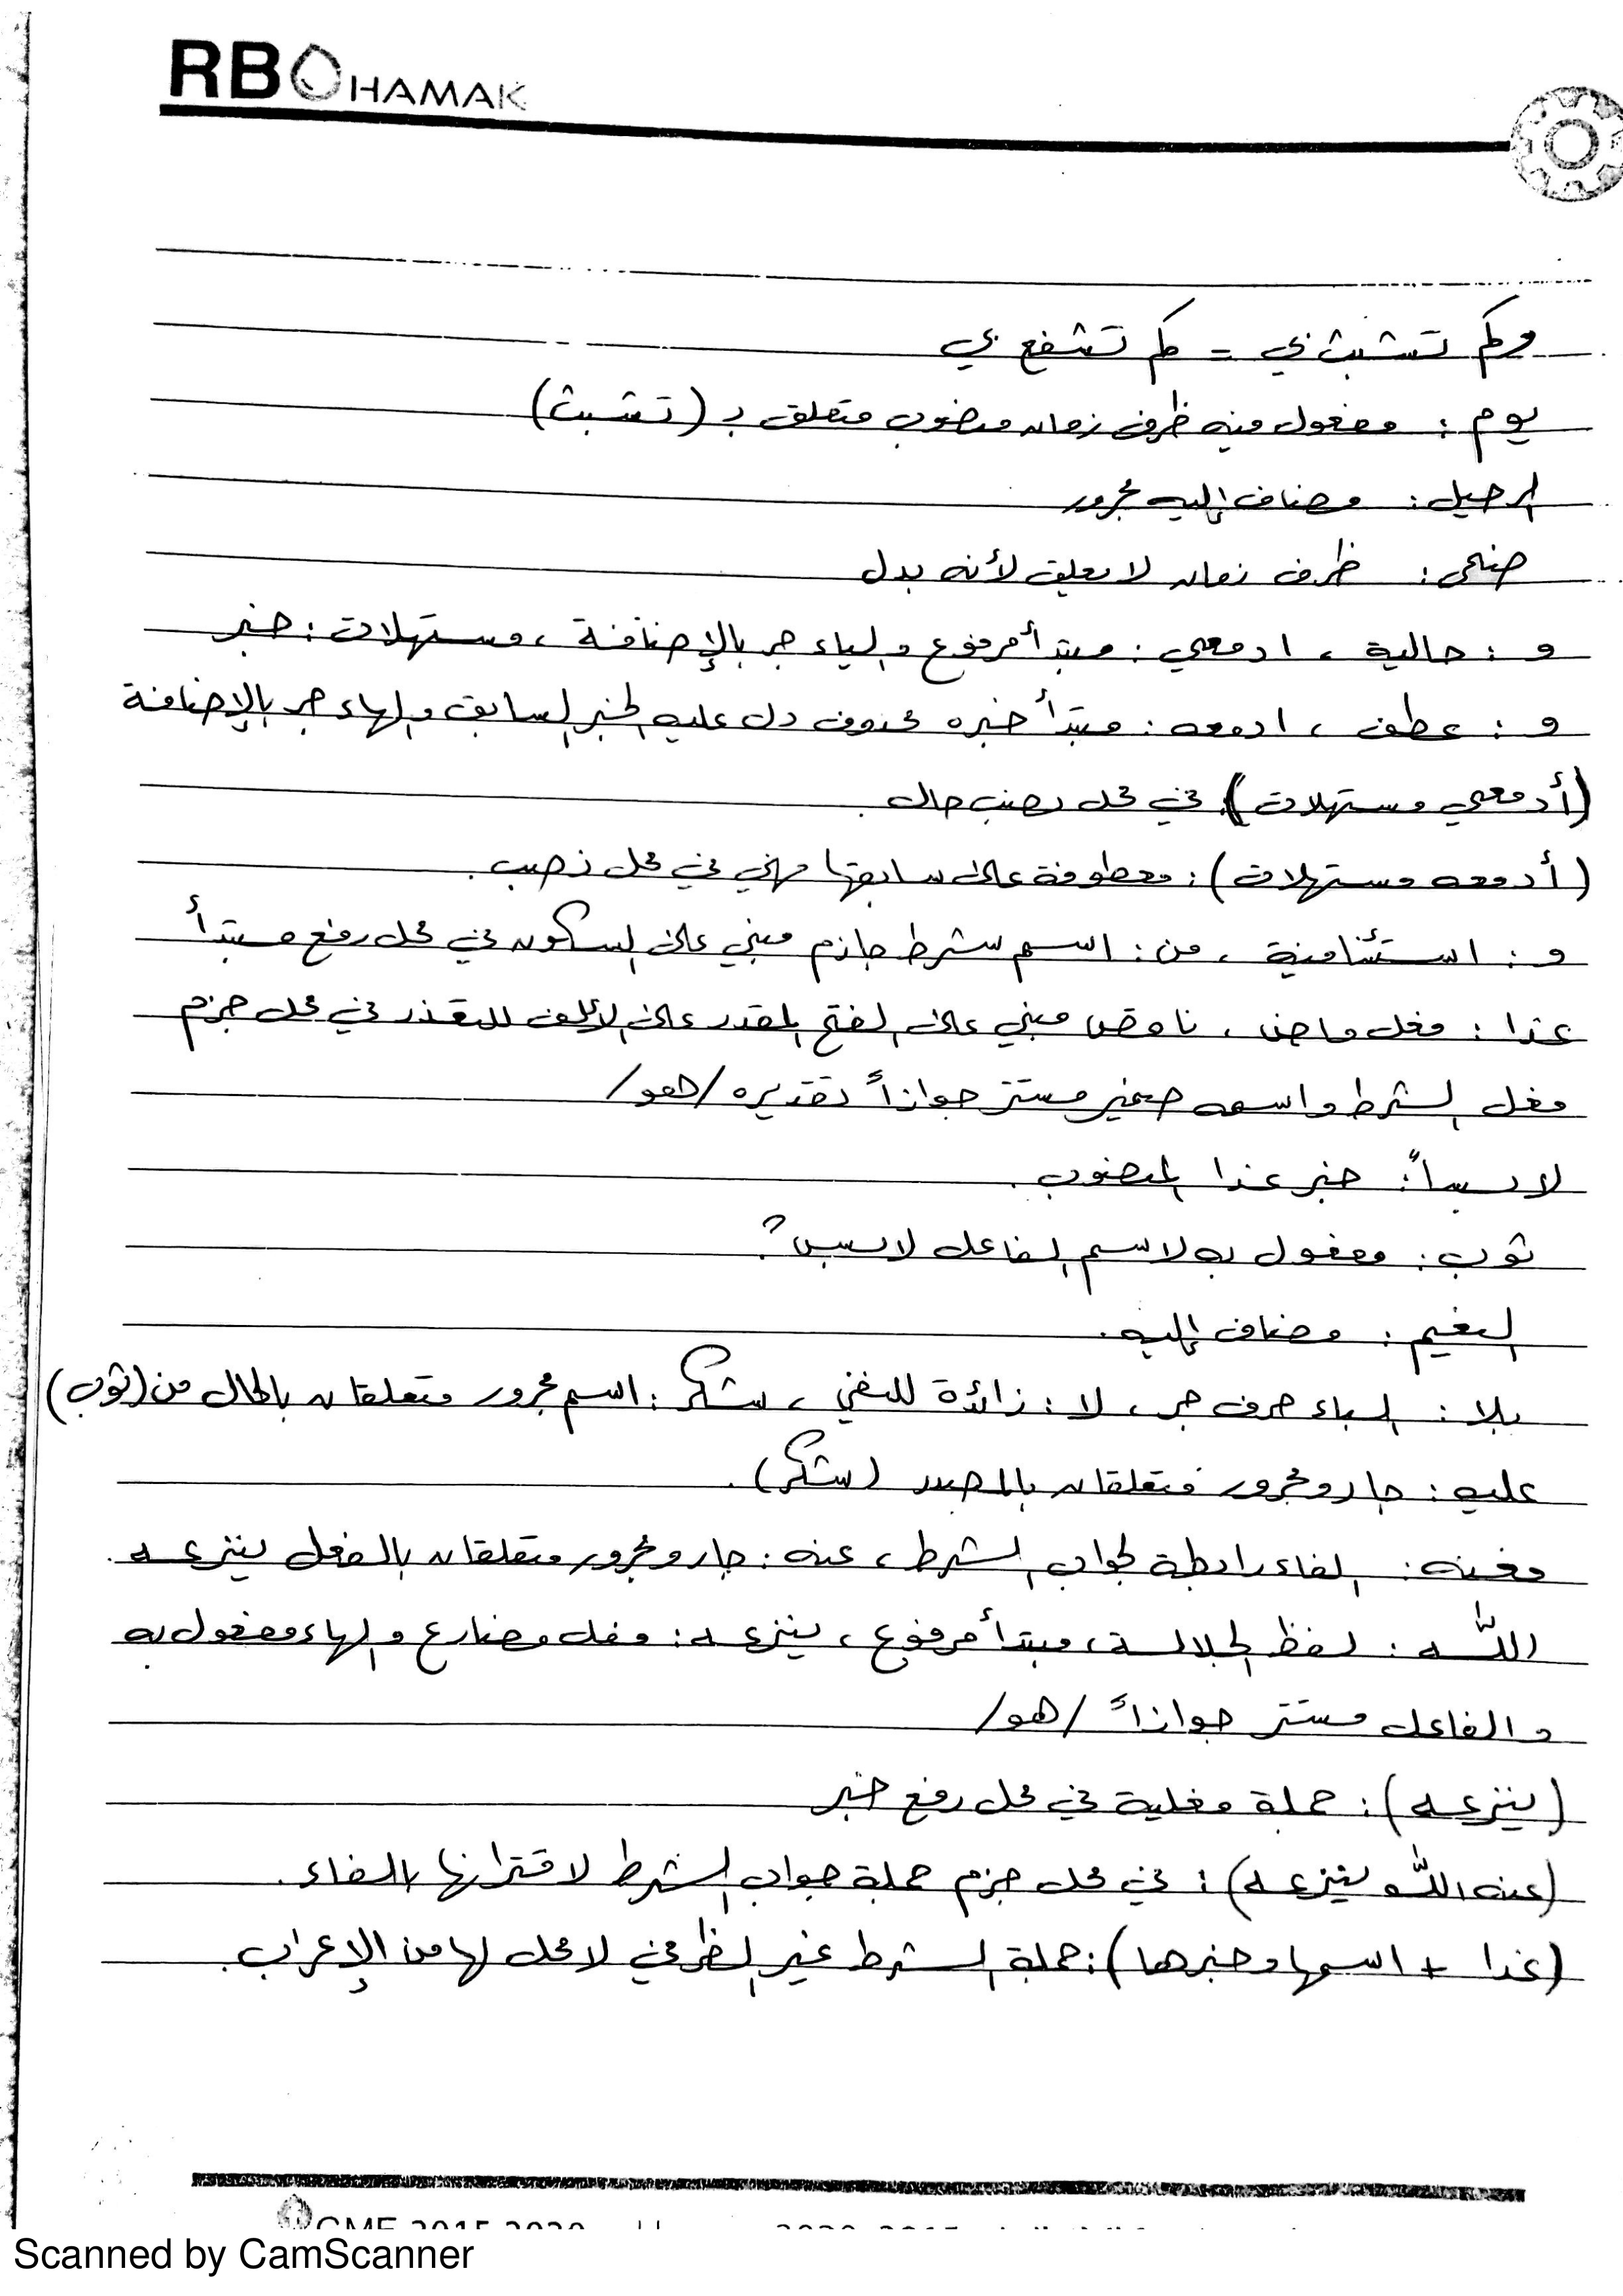 RB HAMAK
وكم تشبث بي = كم تشفع بي
يوم : مفعول فيه ظرف زمان منصوب متعلق بـ (تشبث)
الرحيل : مضاف إليه مجرور
ضحى : ظرف زمان لا يعلق لأنه بدل
و : حالية ، ادمعي : مبتدأ مرفوع والياء جر بالإضافة ، مستهلات : خبر
و : عطف ، ادمعه : مبتدأ خبره محذوف دل عليه الخبر السابق والهاء جر بالإضافة
(أدمعي مستهلات) في محل نصب حال .
(أدمعه مستهلات) : معطوفة على سابقتها فهي في محل نصب .
و : استئنافية ، من : اسم شرط جازم مبني على السكون في محل رفع مبتدأ
غدا : فعل ماض ، ناقص مبني على الفتح المقدر على الألف للتعذر في محل جزم
فعل الشرط واسمه ضمير مستتر جوازاً تقديره /هو/
لابساً : خبر غدا المنصوب .
ثوب : مفعول به لاسم الفاعل لابس ؟
النعيم : مضاف إليه .
بلا : الباء حرف جر ، لا : زائدة للنفي ، شكر : اسم مجرور متعلقان بالحال من (ثوب)
عليه : جار ومجرور متعلقان بالمصدر (شكر) .
فعنه : الفاء رابطة لجواب الشرط ، عنه : جار ومجرور متعلقان بالفعل ينزعه .
اللّه : لفظ الجلالة ، مبتدأ مرفوع ، ينزعه : فعل مضارع والهاء مفعول به
والفاعل مستتر جوازاً /هو/
(ينزعه) : جملة فعلية في محل رفع خبر
(عنه اللّه ينزعه) : في محل جزم جملة جواب الشرط لاقترانها بالفاء .
(غدا + اسمها وخبرها) : جملة الشرط غير الظرفي لا محل لها من الإعراب .
Scanned by CamScanner